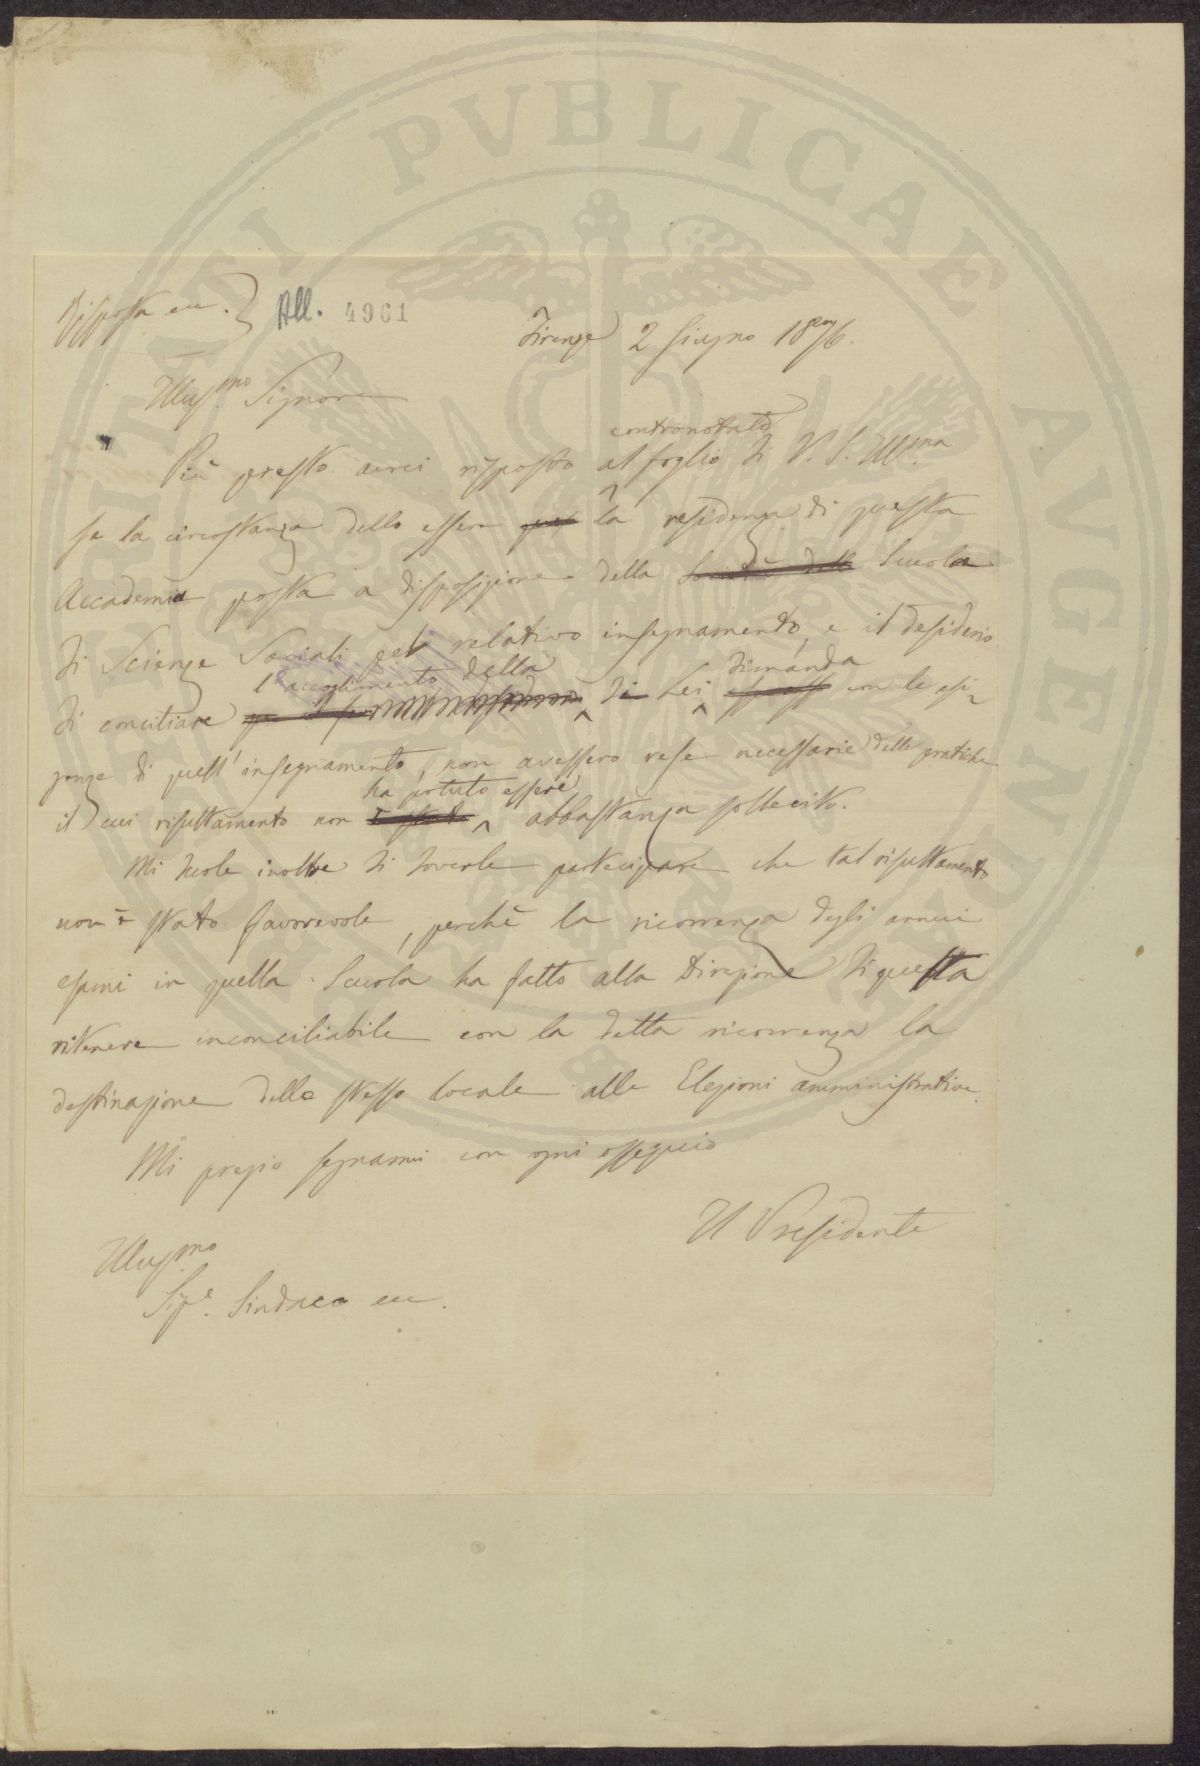 PROSPERITATI PVBLICAE AVGENDAE
Risposta ecc.
All. 4961
Firenze 2 Giugno 1876.
Illus.mo Signore
Più presto avrei risposto al contronotato foglio di V. S. Ill.ma
se la circostanza dello essere la residenza di questa
Accademia posta a disposizione della Società della Scuola
di Scienze Sociali pel relativo insegnamento, e il desiderio
di conciliare l'accoglimento della di Lei dimanda con le esi-
genze di quell'insegnamento, non avessero rese necessarie delle pratiche
il cui resultamento non è stato ha potuto essere abbastanza sollecito.
Mi duole inoltre di doverle partecipare che tal resultamento
non è stato favorevole, perchè la ricorrenza degli annui
esami in quella Scuola ha fatto alla Direzione di questa
ritenere inconciliabile con la detta ricorrenza la
destinazione dello stesso locale alle Elezioni amministrative.
Mi pregio segnarmi con ogni ossequio
Il Presidente
Illus.mo
Sig.e Sindaco ecc.